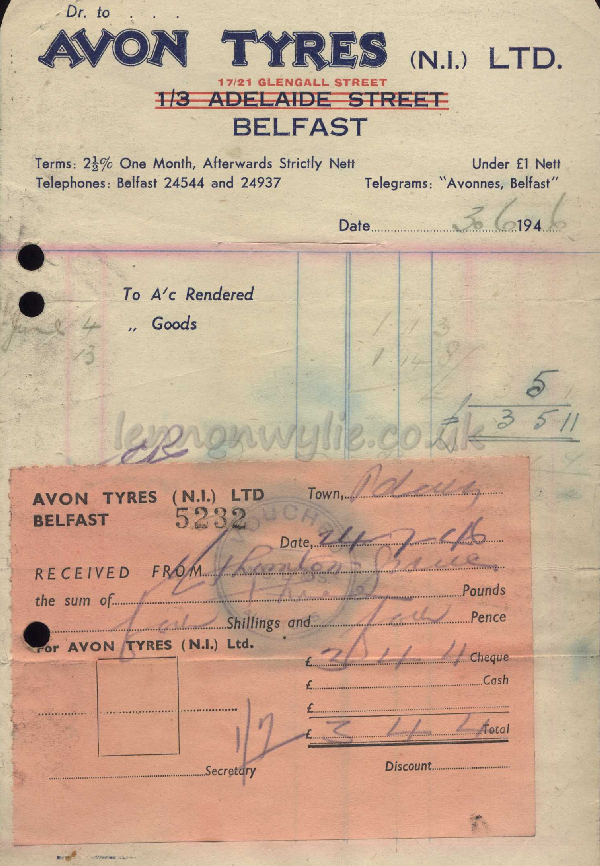 Dr. to . . .
AVON TYRES (N.I.) LTD.
17/21 GLENGALL STREET
1/3 ADELAIDE STREET
BELFAST
Terms: 2½% One Month, Afterwards Strictly Nett Under £1 Nett
Telephones: Belfast 24544 and 24937 Telegrams: "Avonnes, Belfast"
Date 30 6 194 6
To A'c Rendered
June 4 „ Goods 1 11 3
13 1 14 8
5
£ 3 5 11
lemonwylie.co.uk
AVON TYRES (N.I.) LTD Town,
BELFAST 5232
VOUCHER
Date, 24-7-46
RECEIVED FROM
the sum of Three Pounds
four Shillings and four Pence
For AVON TYRES (N.I.) Ltd.
£ 3 4 4 Cheque
£ Cash
£
1/7 £ 3 4 4 Total
Secretary Discount